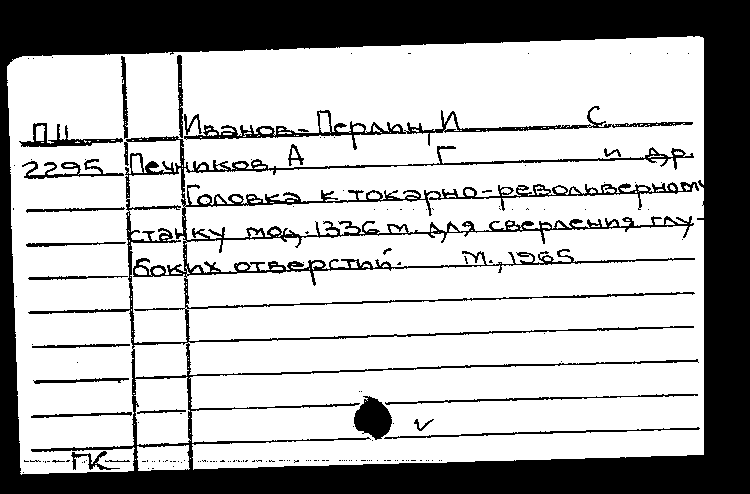 П11 Иванов-Перлин, И С
2295 Печников, А Г и др.
Головка к токарно-револьверному
станку мод. 1336м. для сверления глу-
боких отверстий. М., 1965
ГК